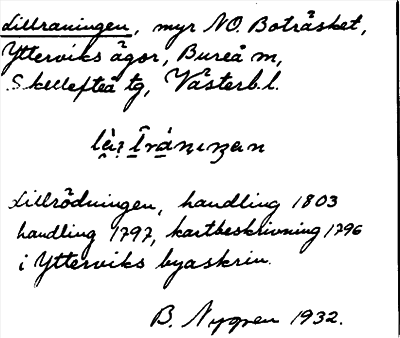 Lillraningen, myr NO. Boträsket,
Ytterviks ägor, Bureå m,
Skellefteå tg, Västerb. l.
Lillrödningen, handling 1803
handling 1797, kartbeskrivning 1796
i Ytterviks byaskrin.
B. Nygren 1932.